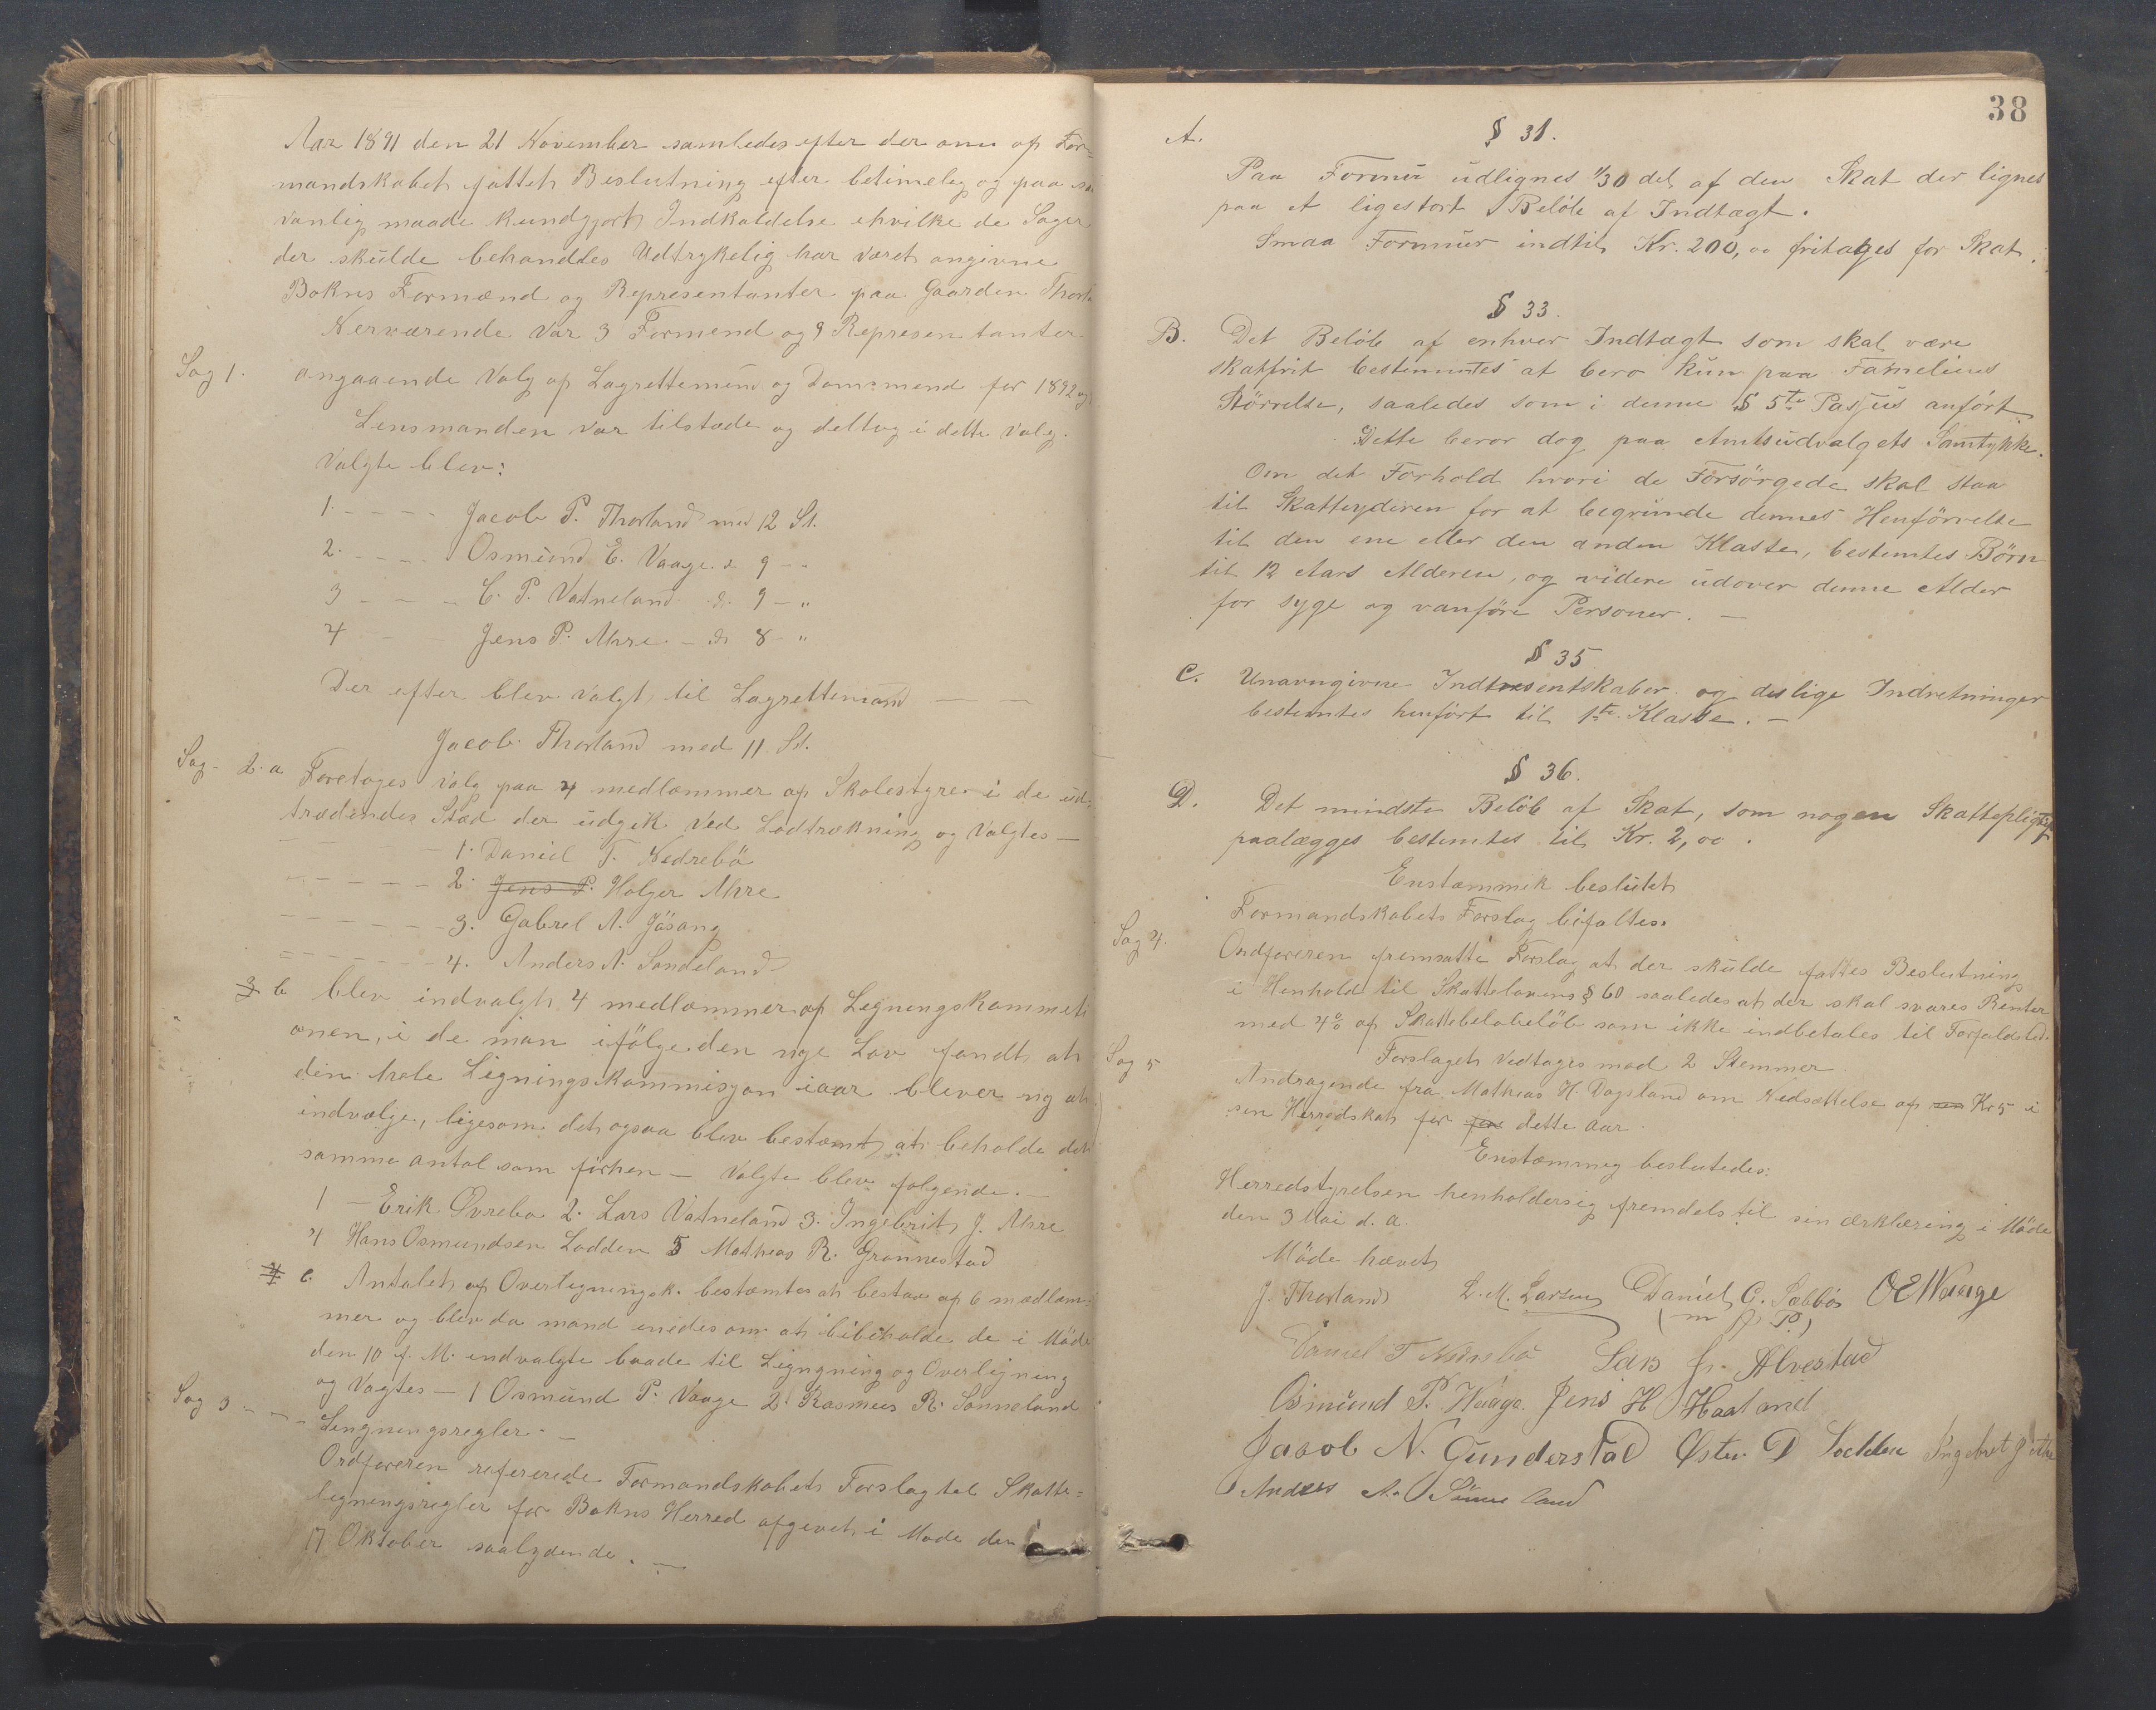 Aar 1891 den 21 November samledes efter der om af For=
mandskabet fattet Beslutning efter betimelig og paa sæd
vanlig maade kundgjort Indkaldelse ihvilke de Sager
der skulde behandles Udtrykelig har været angivne
Bokns Formænd og Representanter paa Gaarden Thorl.
Nerværende Var 3 Formend og 9 Representanter
Sag 1. angaaende Valg af Lagrettemend og Domsmend for 1892 og
Lensmanden var tilstæde og deltog i dette Valg.
Valgte blev:
1. - - - - Jacob P. Thorland med 12 St.
2. - - - - Osmund E. Vaage d. 9 - -
3 - - - C. P. Vatneland d. 9 - "
4 - - Jens P. Ahre - d. 8 - "
Der efter blev Valgt til Lagrettemand — —
Jacob Thorland med 11 St.
Sag - 2. a Foretoges Valg paa 4 medlommer af Skolestyre i de ud,
trædendes Stæd der udgik ved Lodtrækning og Valgtes —
1. Daniel T. Nedrebö
2. Jens P. Holger Ahre
3. Gabrel A. Jösang
4. Anders A. Sandeland
3 b blev indvalgt 4 medlommer af Legningskommeti
onen, i de man ifölge den nye Lov fandt at
din hele Ligningskommisjon iaar blever ny at
indvælge, ligesom det ogsaa blev bestæmt at beholde det
samme antal som förhen — Valgte blev følgende. —
1 — Erik Øvrebø 2. Lars Vatneland 3. Ingebrit J. Ahre
4 Hans Osmundsen Lodden 5 Mathias R. Grønnestad
4 c. Antalet af Overlegningsk. bestæmtes at bestaa af 6 medlom=
mer og blev da mand enedes om at bibeholde de i Möde
den 10 f. M. indvalgte baade til Ligngning og Overligning
og Vagtes — 1 Osmund P. Vaage 2. Rasmus R. Sønneland
Sag 3 - - - Lengningsregler. —
Ordføreren refererede Formandskabets Forslag tel Skatte=
legningsregler for Bokns Herred afgevet i Møde den
17 Oktober saalydende. —
38
A. § 31.
Paa Formue udlignes 1/30 del af den Skat der lignes
paa et ligestort Belöb af Indtægt.
Smaa Formuer indtil Kr. 200,00 fritages for Skat.
§ 33.
B. Det Belöb af enhver Indtægt som skal være
skatfrit bestemmtes at bero kun paa Familiens
Störrelse, saaledes som i denne § 5te Passus anfört.
Dette beror dog paa Amtsudvalgets Samtykke.
Om det Forhold hvori de Forsörgede skal staa
til Skatteyderen for at begrunde dennes Henförrelse
til den ene eller den anden Klasse, bestemtes Börn
til 12 Aars Alderen, og videre udover denne Alder
for syge og vanföre Personer. —
§ 35
C. Unavngivne Indtresentskaber og deslige Indretninger
bestemtes henfört til 1ste Klasse. —
§ 36.
D. Det mindste Belöb af Skat, som nogen Skattepligtig
paalægges bestemtes til Kr. 2,00.
Enstæmmik beslutet
Formandskabets Forslag bifaltes.
Sag 4. Ordføreren fremsatte Forslag at der skulde fattes Beslutning
i Henhold til Skattelovens § 60 saaledes at der skal svares Renter
med 4% af Skattebelobelöb som ikke indbetales til Forfaldstid.
Forslaget Vedtoges mod 2 Stemmer.
Sag 5 Andragende fra Mathias H. Vagsland om Nedsættelse af sen Kr 5 i
sen Herredskat for for dette aar.
Enstæmmeg beslutedes:
Herredstyrelsen henholdersig fremdels til sin ærklæring i Möde
den 3 Mai d. a.
Möde hævet
J. Thorland L. M. Larsen Daniel C. Sæbbö O E Waage
(m p. P.)
Daniel T Nedrebö Lars Alvestad
Osmund P. Waage. Jens H Haaland
Jacob N. Gunderstad Østen D Lodden Ingebret J Ahre
Anders A. Sönneland